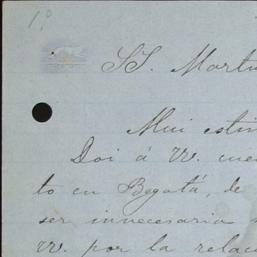 1º
SS. Martí
Mui estim
Doi á VV. cuen
to en Bogotá, de
ser innecesaria
VV. por la relac